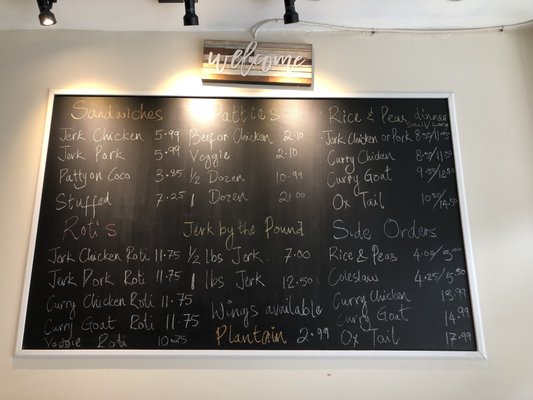 welcome
Sandwiches
Jerk Chicken 5.99
Jerk Pork 5.99
Patty on Coco 3.85
Stuffed 7.25
Roti's
Jerk Chicken Roti 11.75
Jerk Pork Roti 11.75
Curry Chicken Roti 11.75
Curry Goat Roti 11.75
Veggie Roti 10.25
Patties
Beef or Chicken 2.10
Veggie 2.10
1/2 Dozen 10.99
1 Dozen 21.00
Jerk by the Pound
1/2 lbs Jerk 7.00
1 lbs Jerk 12.50
Wings available
Plantain 2.99
Rice & Peas dinner
Jerk Chicken or Pork
Curry Chicken
Curry Goat
Ox Tail
Side Orders
Rice & Peas
Coleslaw 4.25/
Curry Chicken
Curry Goat 14.99
Ox Tail 17.99